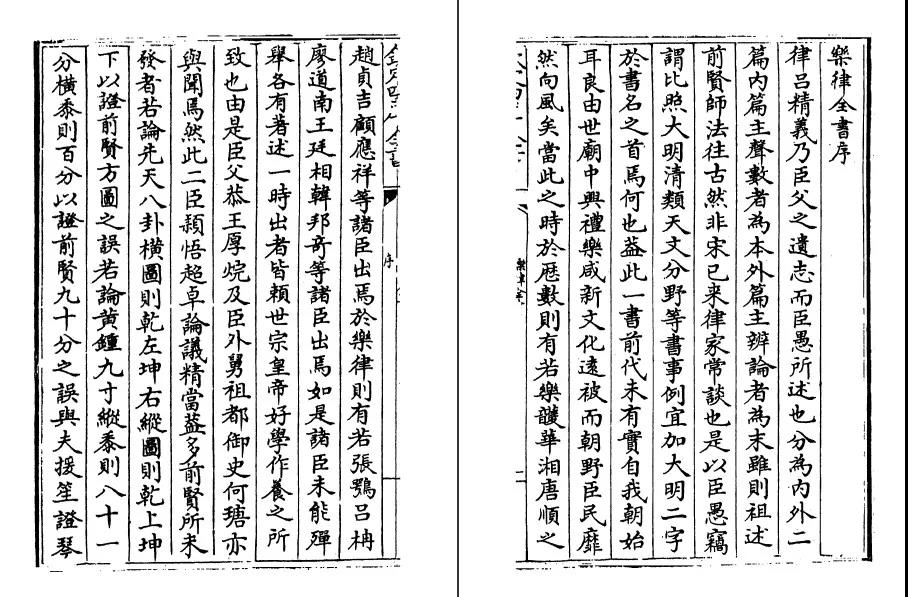 樂律全書序
律吕精義乃臣父之遺志而臣愚所述也分為内外二
篇内篇主聲數者為本外篇主辨論者為末雖則祖述
前賢師法往古然非宋已来律家常談也是以臣愚竊
謂比照大明清類天文分野等書事例宜加大明二字
於書名之首焉何也葢此一書前代未有實自我朝始
耳良由世廟中興禮樂咸新文化逺被而朝野臣民靡
然向風矣當此之時於厯數則有若樂頀華湘唐順之
樂律全
二
欽定四庫全書
序
趙貞吉顧應祥等諸臣出焉於樂律則有若張鶚吕柟
廖道南王廷相韓邦竒等諸臣出焉如是諸臣未能殫
舉各有著述一時出者皆頼世宗皇帝好學作養之所
致也由是臣父恭王厚烷及臣外舅祖都御史何瑭亦
與聞焉然此二臣頴悟超卓論議精當葢多前賢所未
發者若論先天八卦横圖則乾左坤右縱圖則乾上坤
下以證前賢方圖之誤若論黄鐘九寸縱黍則八十一
分横黍則百分以證前賢九十分之誤與夫援笙證琴